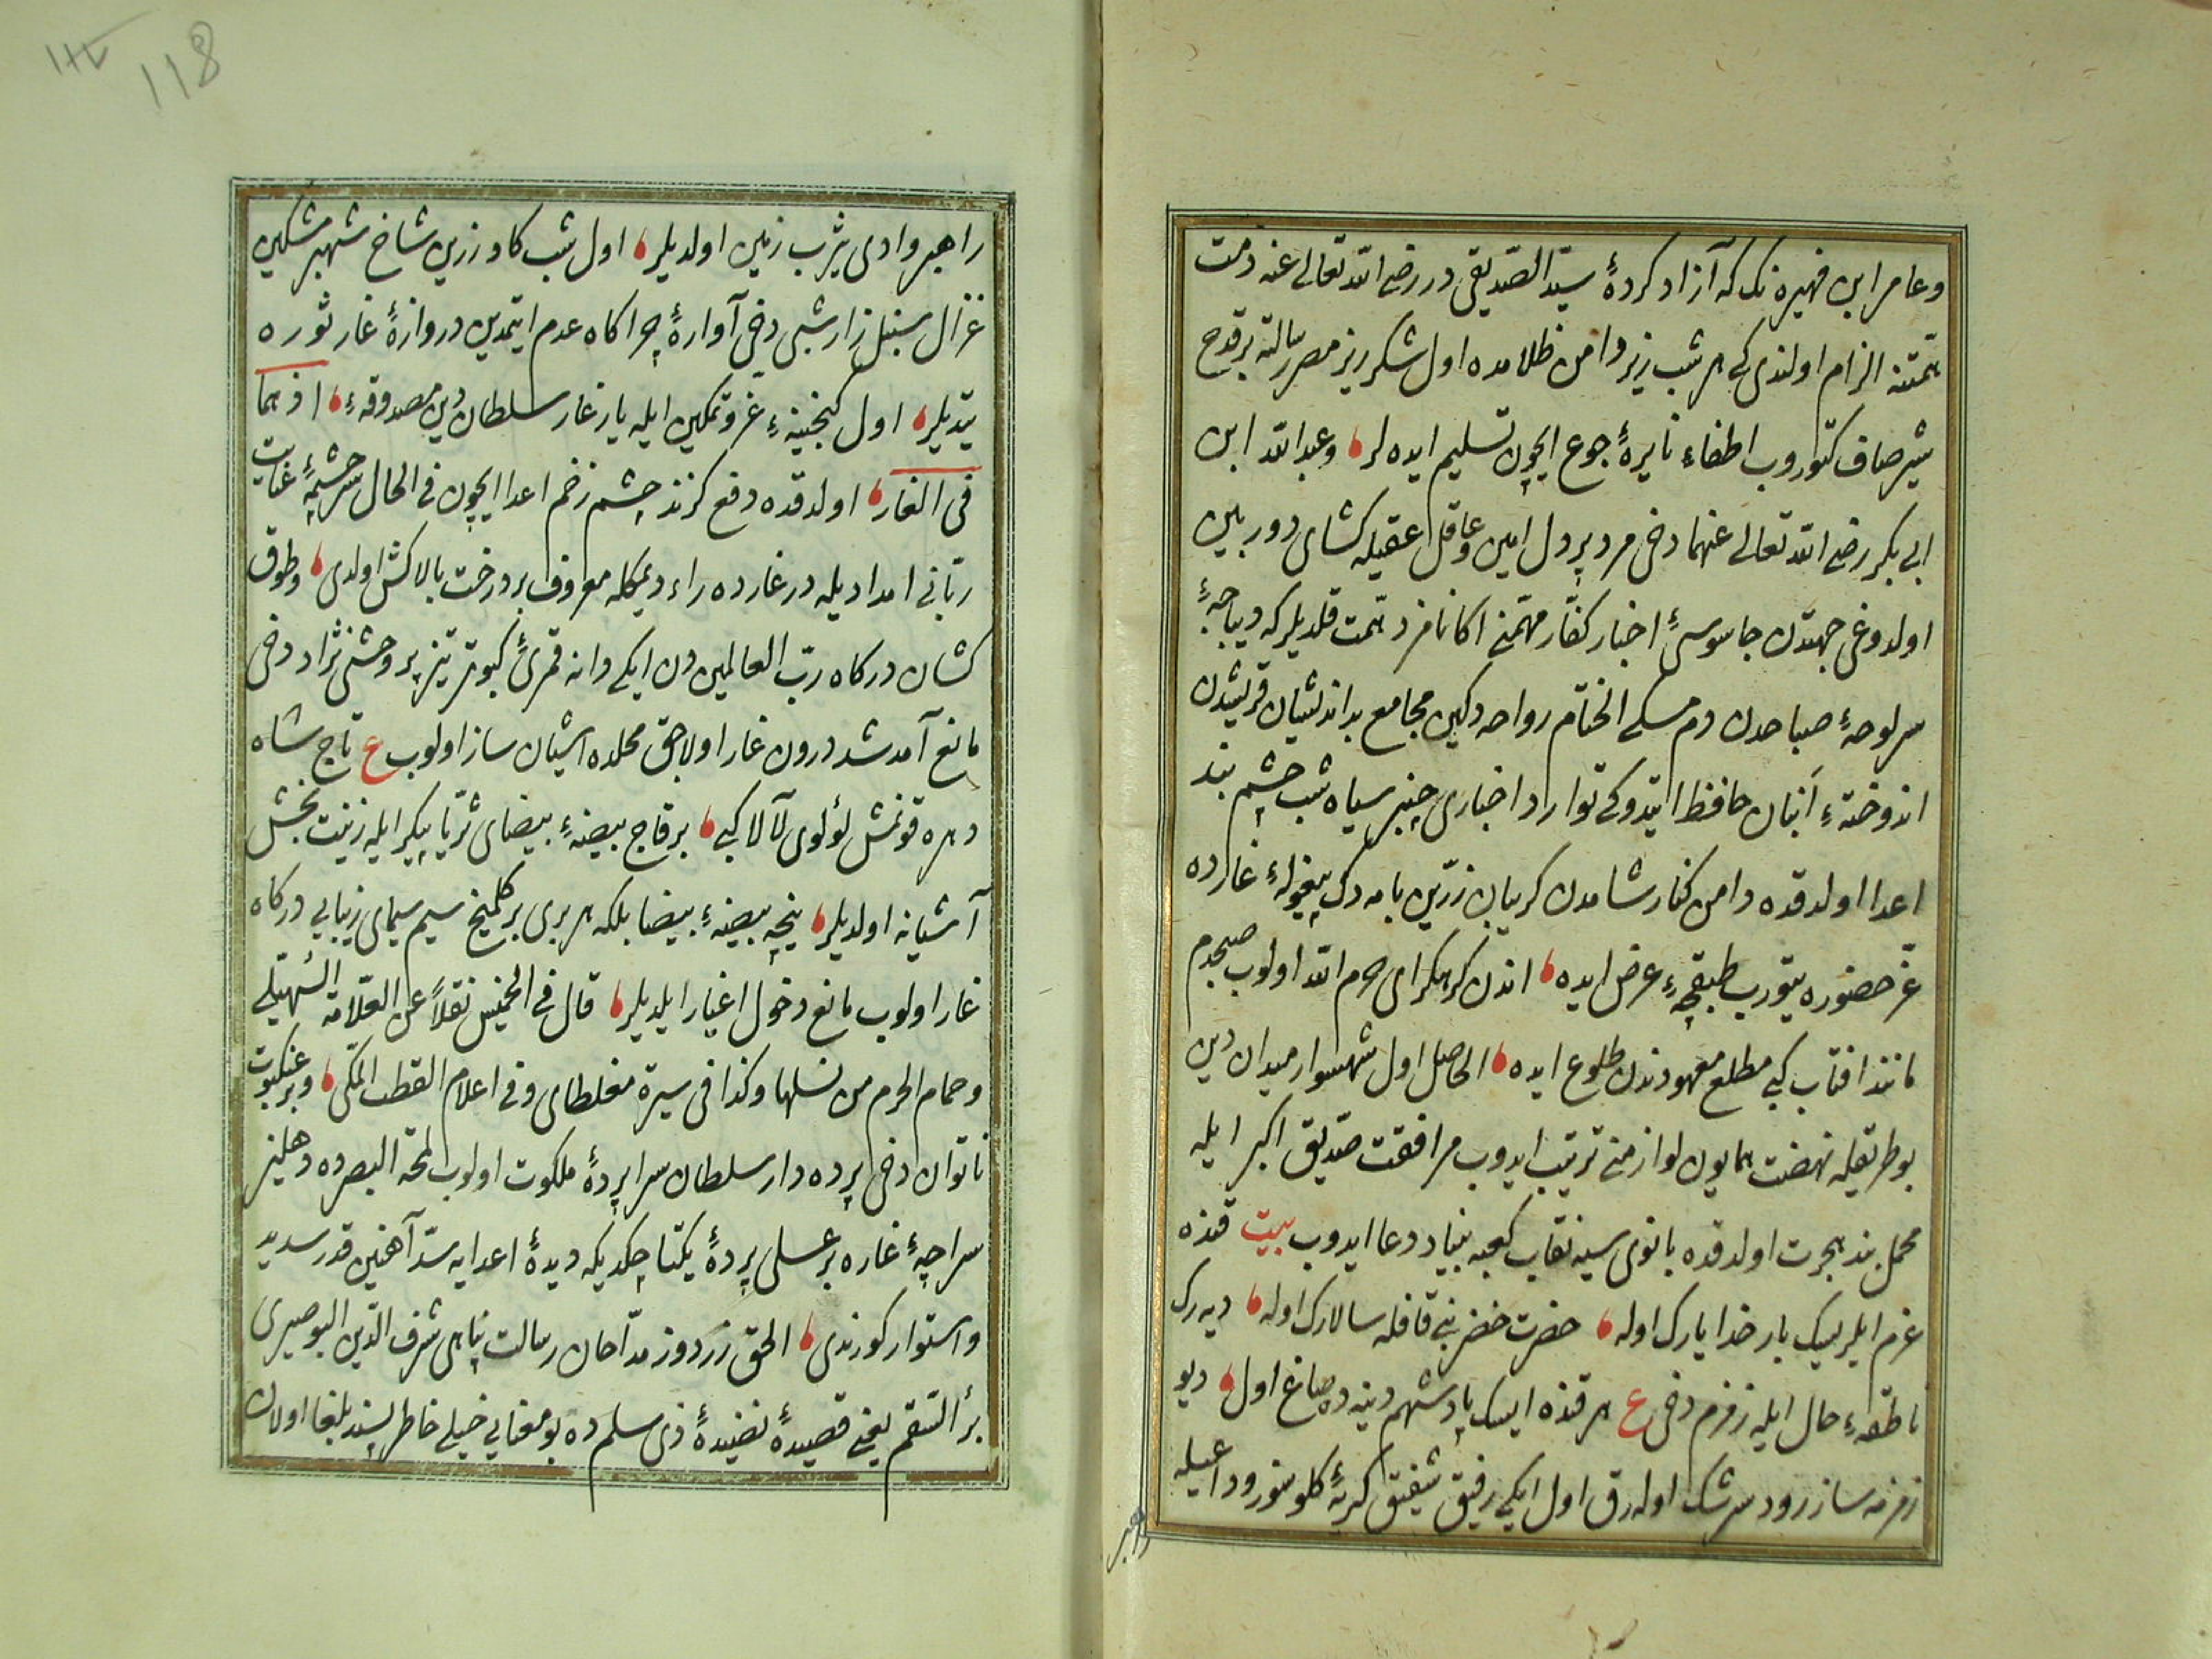 وعامر ابن فهیره نک که آزاد کردهٔ سیّد الصّدیقی در رضی الله تعالی عنه ذمت
همّتنه الزام اولندی که هر شب زیر دامن ظلامده اول شکر ریز مصر رسالته بر قدح
شیر صاف کتوروب اطفاء نایرهٔ جوع ایچون تسلیم ایده لر وعبد الله ابن
ابی بکر رضی الله تعالی عنهما دخی مرد پر دل امین وعاقل عقیله کشای دوربین
اولدوغی جهتدن جاسوسیٔ اخبار کفّار مهمّنی اکا نامزد همّت قلدیلر که دیباجهٔ
سرلوحهٔ صباحدن دم مسکی الختام رواحه دکین مجامع بداندیشان قریشدن
اندوختهٔ انبان حافظا ایتدوکی توارد اخباری چنبر سیاه شب چشم بند
اعدا اولدقده دامن کنار شامدن کریبان زرّین بامه دک پیغولهٔ غارده
عزّ حضوره یتورب طبقچهٔ عرض ایده اندن کرمکرای حرم الله اولوب صبحدم
مانند افتاب کبی مطلع معهودندن طلوع ایده الحاصل اول شهسوار میدان دین
بو طریقله نهضت همایون لوازمنی ترتیب ایدوب مرافقت صدّیق اکبر ایله
محمل بند هجرت اولدقده بانوی سیه نقاب کعبه بنیاد دعا ایدوب بیت قنده
عزم ایلرسک بار خدا یارک اوله حضرت خضر نبی قافله سالارک اوله دیه رک
ناطقهٔ حال ایله زمزم دخی ع هر قنده ایسک پادشهم دینده صاغ اول دیو
زمزمه ساز رود سرشک اوله رق اول ایکی رفیق شفیق کریهٔ کلوسوز وداعیله
راهبر
118
راهبر وادی یثرب زمین اولدیلر اول شب کاو زرین شاخ شهپر مشکین
غزال سنبل زار شبی دخی آوارهٔ چراکاه عدم ایتمدین دروازهٔ غار ثوره
یتدیلر اول کنجینهٔ عزّ وتمکین ایله یار غار سلطان دین مصدوقهٔ اذ هما
فی الغار اولدقده دفع کزند چشم زخم اعدا ایچون فی الحال سرچشمهٔ عنایت
ربّانی امدادیله در غارده راء دیمکله معروف بر درخت بالاکش اولدی وطوق
کشان درکاه ربّ العالمین دن ایکی دانه قمریٔ کبوتر تیز پر وحشی نژاد دخی
مانع آمد شد درون غار اولاجق محلده اشیان ساز اولوب ع تاج شاه
دهره قونمش لؤلوی لآلا کبی بر قاج بیضهٔ بیضای ثریّا پیکر ایله زینت بخش
آشیانه اولدیلر نیجه بیضهٔ بیضا بلکه هر بری بر کلمیخ سیم سیمای زیبایی درکاه
غار اولوب مانع دخول اغیار ایلدیلر قال فی الخمیس نقلاً عن العلّامة السّهیلی
وحمام الحرم من نسلها وکذا فی سیرة مغلطای وفی اعلام القطب المکی وبر عنکبوت
ناتوان دخی پرده دار سلطان سراپردهٔ ملکوت اولوب لمحة البصرده دهلیز
سراچهٔ غاره بر عسلی پردهٔ یکتا چکدیکه دیدهٔ اعدایه سدّ آهنین قدر سدید
واستوار کورندی الحق زردوز مدّاحان رسالت پناهی شرف الدّین البوصیری
برأ السّقم یعنی قصیدهٔ نضیدهٔ ذی سلم ده بو معنایی خیلی خاطر پسند بلغا اولان